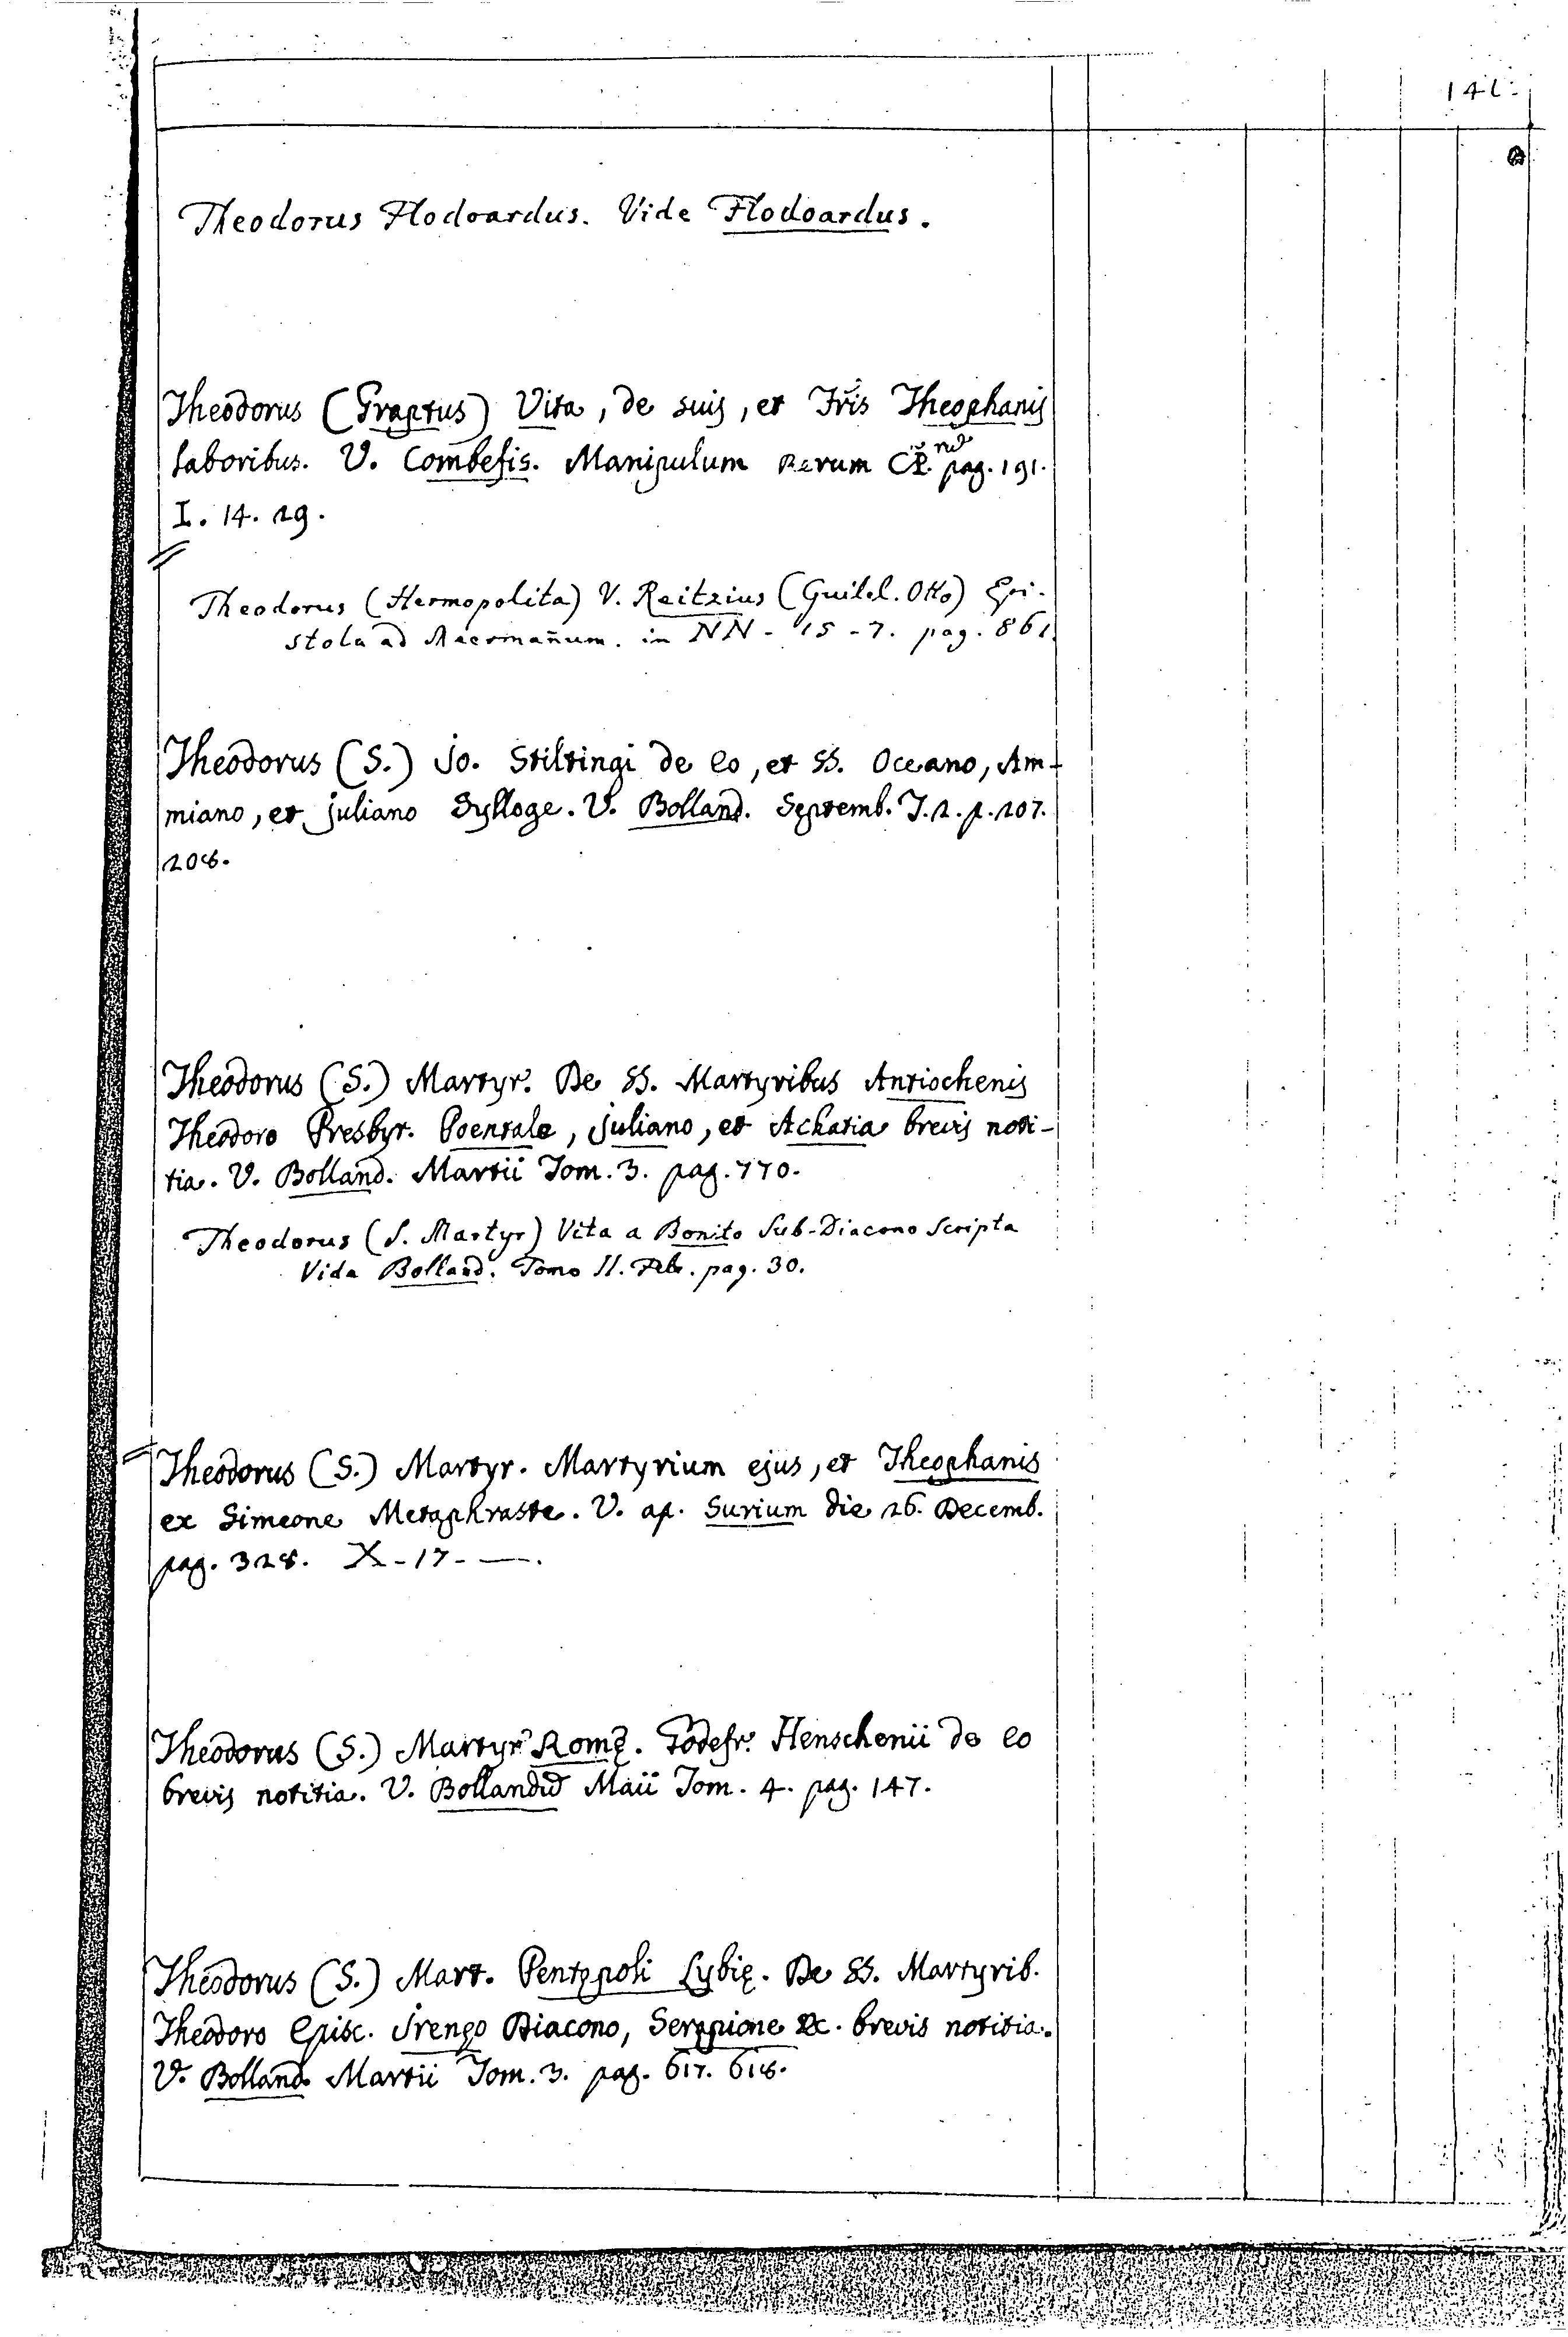 Theodorus Flodoardus. Vide Flodoardus.
Theodorus (Graptus) Vita, de suis, et Fr̃is Theophanis
laboribus. V. Combefis. Manipulum Rerum pag. 191.
I. 14. 29.
Theodorus (Hermopolita) V. Reitzius (Guilel. Otto) Epi-
stola ad Meermañum. in NN - 15 - 7. pag. 861.
Theodorus (S.) Jo. Stiltingi de eo, et SS. Oceano, Am-
miano, et Juliano Sylloge. V. Bolland. Septemb. T. 2. p. 207.
208.
Theodorus (S.) Martyr. De SS. Martyribus Antiochenis
Theodoro Presbyr. Poentale, Juliano, et Achatia brevis noti-
tia. V. Bolland. Martii Tom. 3. pag. 770.
Theodorus (S. Martyr) Vita a Bonito Sub-Diacono Scripta
Vide Bolland. Tomo II. Febr. pag. 30.
Theodorus (S.) Martyr. Martyrium ejus, et Theophanis
ex Simeone Metaphraste. V. ap. Surium die 26. Decemb.
pag. 328. X - 17 - —.
Theodorus (S.) Martyr Romę. Godefr. Henschenii de eo
brevis notitia. V. Bolland Maii Tom. 4. pag. 147.
Theodorus (S.) Mart. Pentapoli Lybię. De SS. Martyrib.
Theodoro Episc. Irenęo Diacono, Serapione &c. brevis notitia.
V. Bolland. Martii Tom. 3. pag. 617. 618.